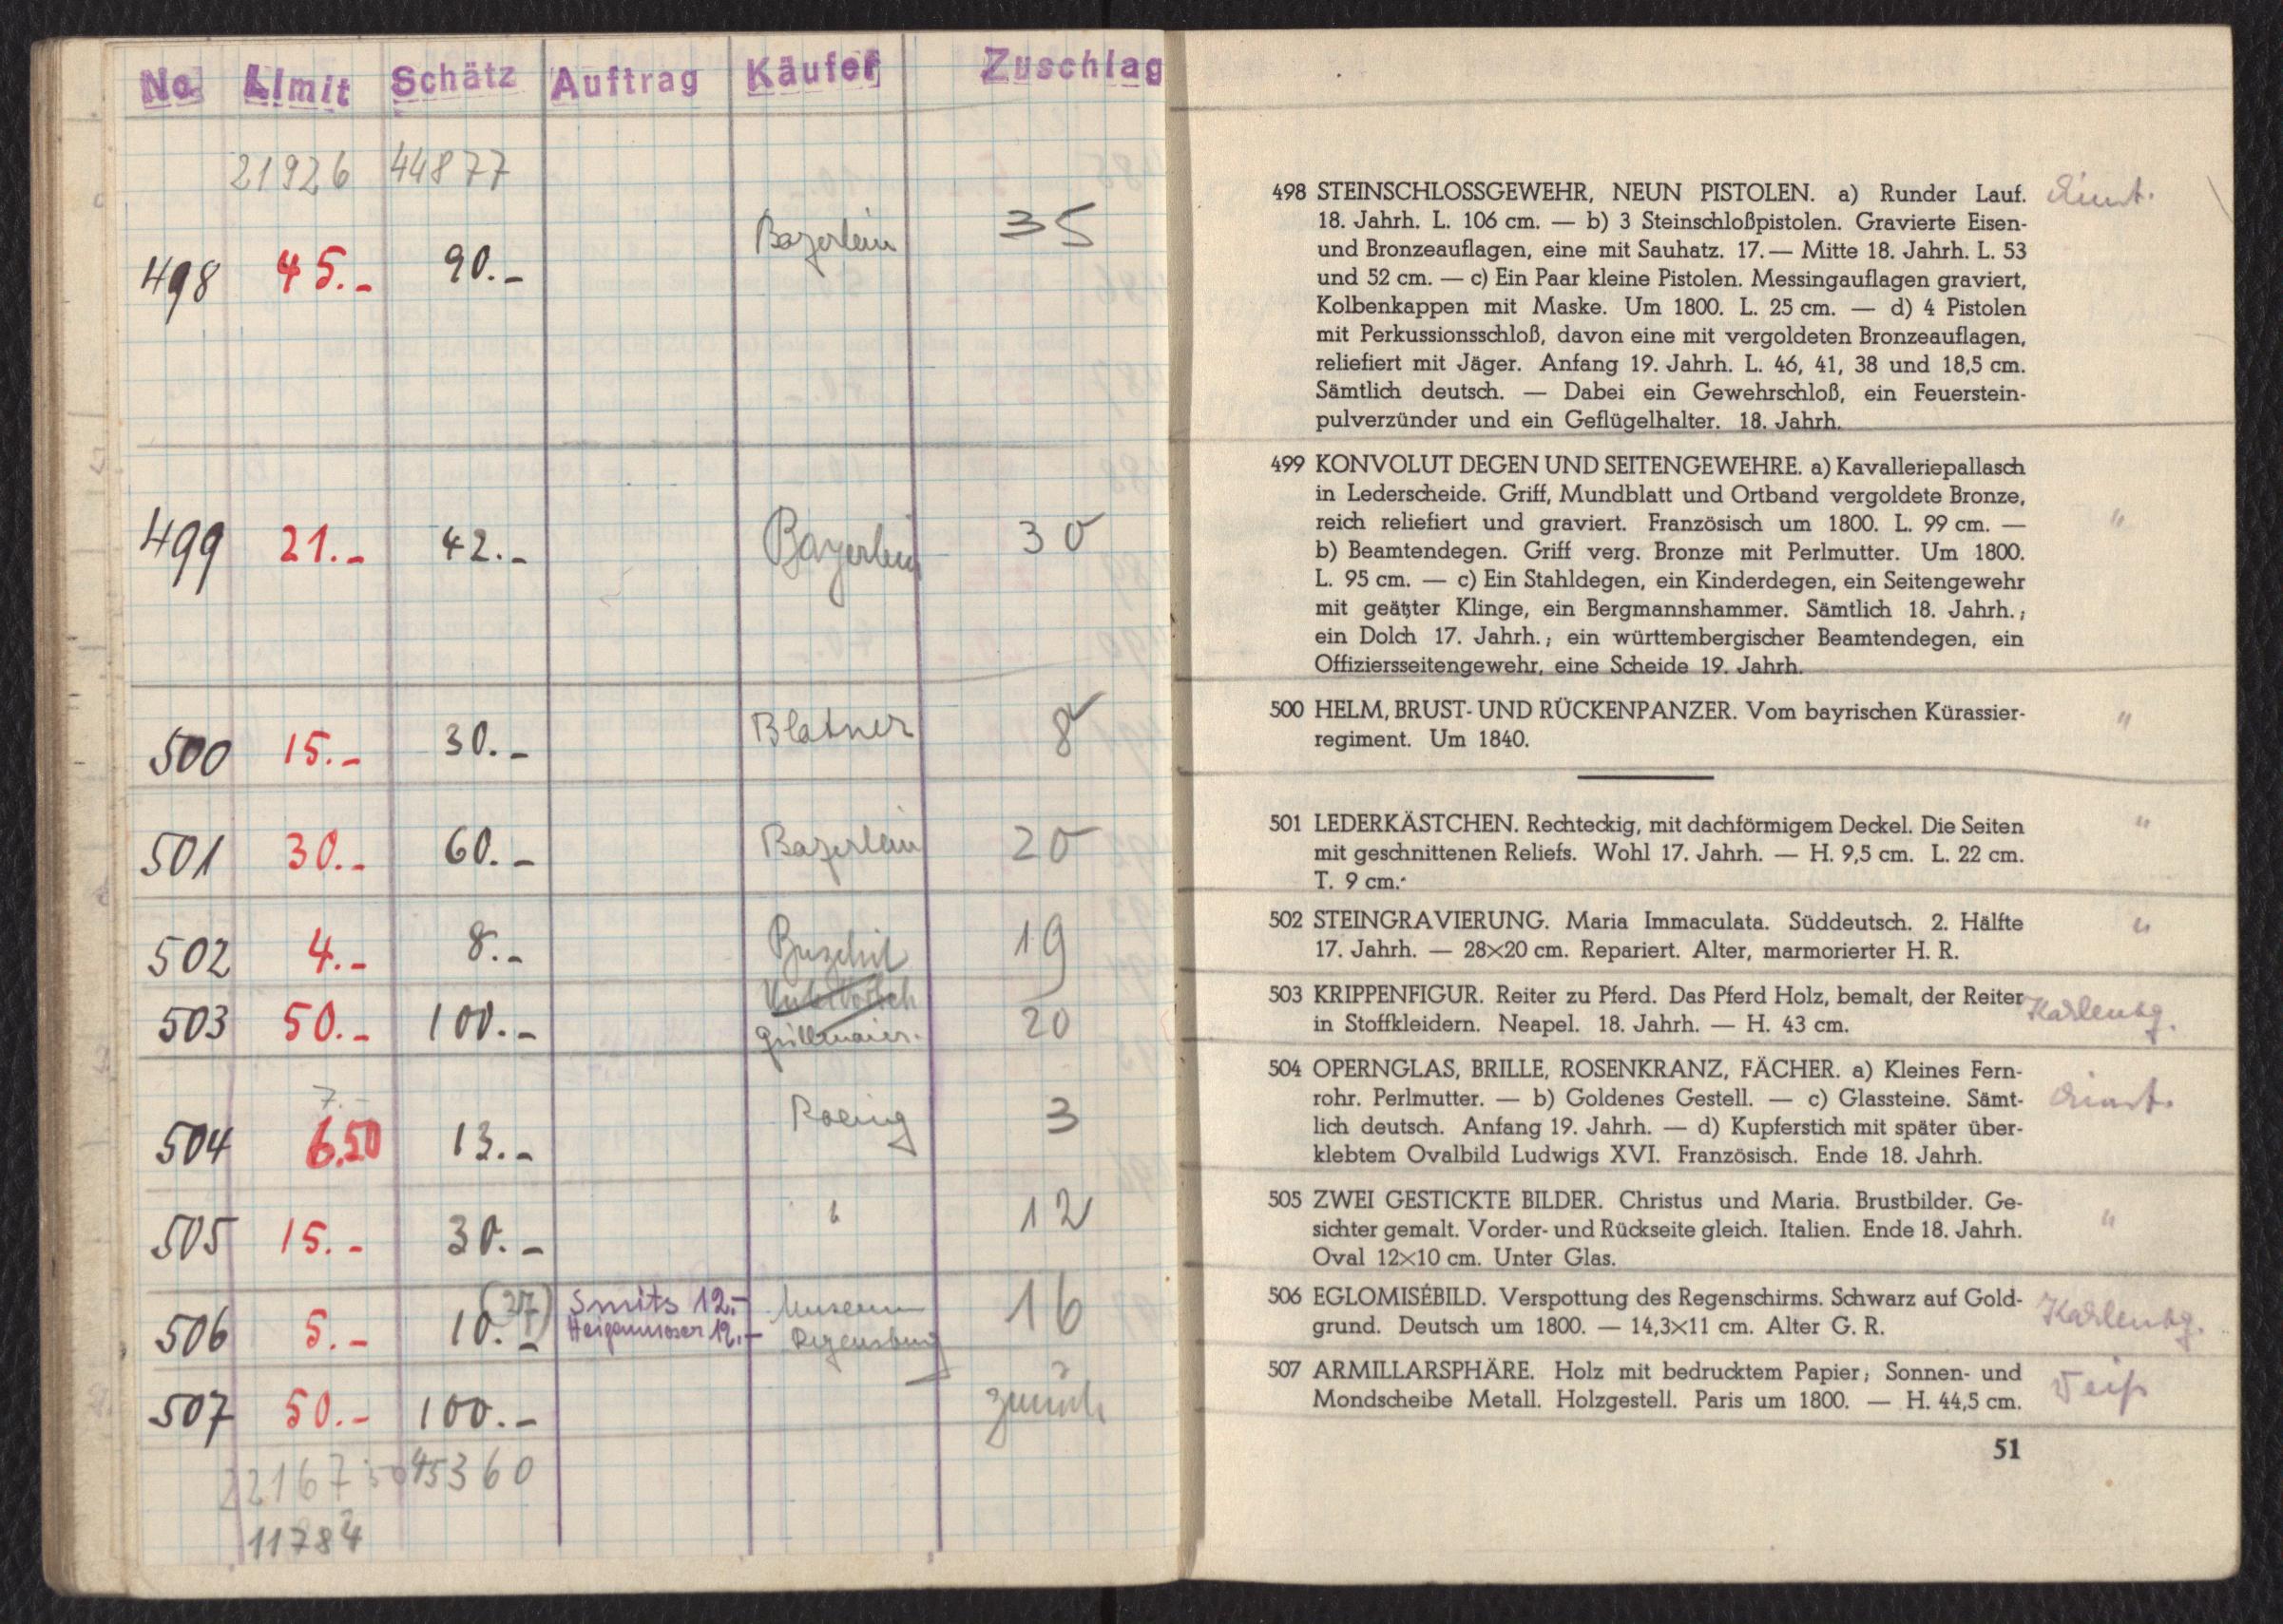 No Limit Schätz Auftrag Käufer Zuschlag
21926 44877
498 45.- 90.- Bayerlein 35
499 21.- 42.- Bayerlein 30
500 15.- 30.- Blatner 8
501 30.- 60.- Bayerlein 20
502 4.- 8.- 19
503 50.- 100.- Grillmaier. 20
7.-
504 6.50 13.- 3
505 15.- 30.- " 12
506 5.- 10.- (27) Smits 12.- Museum 16
Heigenmoser 12.- Regensburg
507 50.- 100.- zurück
22167 50 45360
11784
498 STEINSCHLOSSGEWEHR, NEUN PISTOLEN. a) Runder Lauf.
18. Jahrh. L. 106 cm. — b) 3 Steinschloßpistolen. Gravierte Eisen-
und Bronzeauflagen, eine mit Sauhatz. 17.— Mitte 18. Jahrh. L. 53
und 52 cm. — c) Ein Paar kleine Pistolen. Messingauflagen graviert,
Kolbenkappen mit Maske. Um 1800. L. 25 cm. — d) 4 Pistolen
mit Perkussionsschloß, davon eine mit vergoldeten Bronzeauflagen,
reliefiert mit Jäger. Anfang 19. Jahrh. L. 46, 41, 38 und 18,5 cm.
Sämtlich deutsch. — Dabei ein Gewehrschloß, ein Feuerstein-
pulverzünder und ein Geflügelhalter. 18. Jahrh.
499 KONVOLUT DEGEN UND SEITENGEWEHRE. a) Kavalleriepallasch
in Lederscheide. Griff, Mundblatt und Ortband vergoldete Bronze,
reich reliefiert und graviert. Französisch um 1800. L. 99 cm. — "
b) Beamtendegen. Griff verg. Bronze mit Perlmutter. Um 1800.
L. 95 cm. — c) Ein Stahldegen, ein Kinderdegen, ein Seitengewehr
mit geätzter Klinge, ein Bergmannshammer. Sämtlich 18. Jahrh.;
ein Dolch 17. Jahrh.; ein württembergischer Beamtendegen, ein
Offiziersseitengewehr, eine Scheide 19. Jahrh.
500 HELM, BRUST- UND RÜCKENPANZER. Vom bayrischen Kürassier- "
regiment. Um 1840.
501 LEDERKÄSTCHEN. Rechteckig, mit dachförmigem Deckel. Die Seiten "
mit geschnittenen Reliefs. Wohl 17. Jahrh. — H. 9,5 cm. L. 22 cm.
T. 9 cm.
502 STEINGRAVIERUNG. Maria Immaculata. Süddeutsch. 2. Hälfte "
17. Jahrh. — 28×20 cm. Repariert. Alter, marmorierter H. R.
503 KRIPPENFIGUR. Reiter zu Pferd. Das Pferd Holz, bemalt, der Reiter Karlenbg.
in Stoffkleidern. Neapel. 18. Jahrh. — H. 43 cm.
504 OPERNGLAS, BRILLE, ROSENKRANZ, FÄCHER. a) Kleines Fern-
rohr. Perlmutter. — b) Goldenes Gestell. — c) Glassteine. Sämt-
lich deutsch. Anfang 19. Jahrh. — d) Kupferstich mit später über-
klebtem Ovalbild Ludwigs XVI. Französisch. Ende 18. Jahrh.
505 ZWEI GESTICKTE BILDER. Christus und Maria. Brustbilder. Ge- "
sichter gemalt. Vorder- und Rückseite gleich. Italien. Ende 18. Jahrh.
Oval 12×10 cm. Unter Glas.
506 EGLOMISÉBILD. Verspottung des Regenschirms. Schwarz auf Gold- Karlenbg.
grund. Deutsch um 1800. — 14,3×11 cm. Alter G. R.
507 ARMILLARSPHÄRE. Holz mit bedrucktem Papier; Sonnen- und
Mondscheibe Metall. Holzgestell. Paris um 1800. — H. 44,5 cm.
51